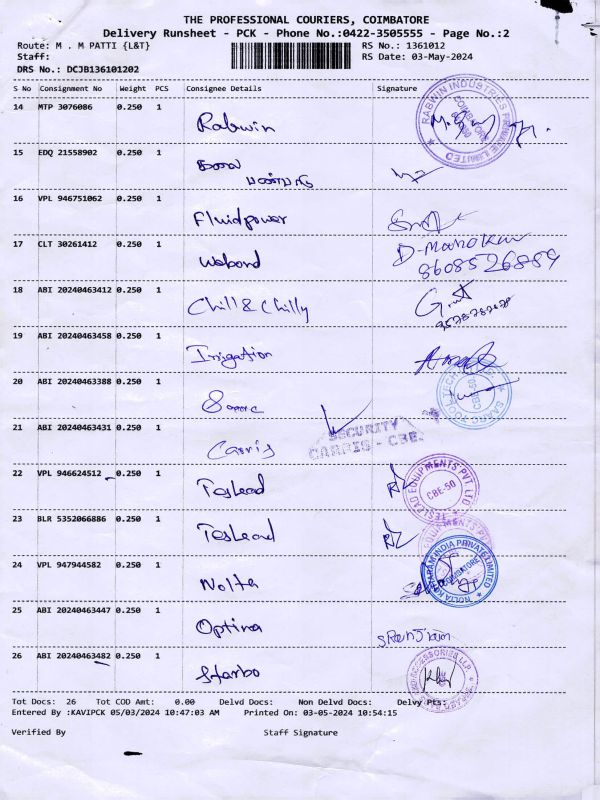 THE PROFESSIONAL COURIERS, COIMBATORE
Delivery Runsheet - PCK - Phone No.:0422-3505555 - Page No.:2
Route: M . M PATTI {L&T} RS No.: 1361012
Staff: RS Date: 03-May-2024
DRS No.: DCJB136101202
S No Consignment No Weight PCS Consignee Details Signature
14 MTP 3076086 0.250 1 Rabwin RABWIN INDUSTRIES PRIVATE LIMITED COIMBATORE
15 EDQ 21558902 0.250 1
16 VPL 946751062 0.250 1 Fluidpower
17 CLT 30261412 0.250 1 Wabond D-Manokar
8608526889
18 ABI 20240463412 0.250 1 Chill & Chilly
19 ABI 20240463458 0.250 1 Irrigation
20 ABI 20240463388 0.250 1
21 ABI 20240463431 0.250 1 SECURITY
CARRIS - CBE.
22 VPL 946624512 0.250 1 Teslead TESLEAD EQUIPMENTS PVT. LTD CBE-50
23 BLR 5352066886 0.250 1 Teslead
24 VPL 947944582 0.250 1 Nolta INDIA PRIVATE LIMITED COIMBATORE
25 ABI 20240463447 0.250 1 Optima
26 ABI 20240463482 0.250 1 Starbo
Tot Docs: 26 Tot COD Amt: 0.00 Delvd Docs: Non Delvd Docs: Delvy Pts:
Entered By :KAVIPCK 05/03/2024 10:47:03 AM Printed On: 03-05-2024 10:54:15
Verified By Staff Signature